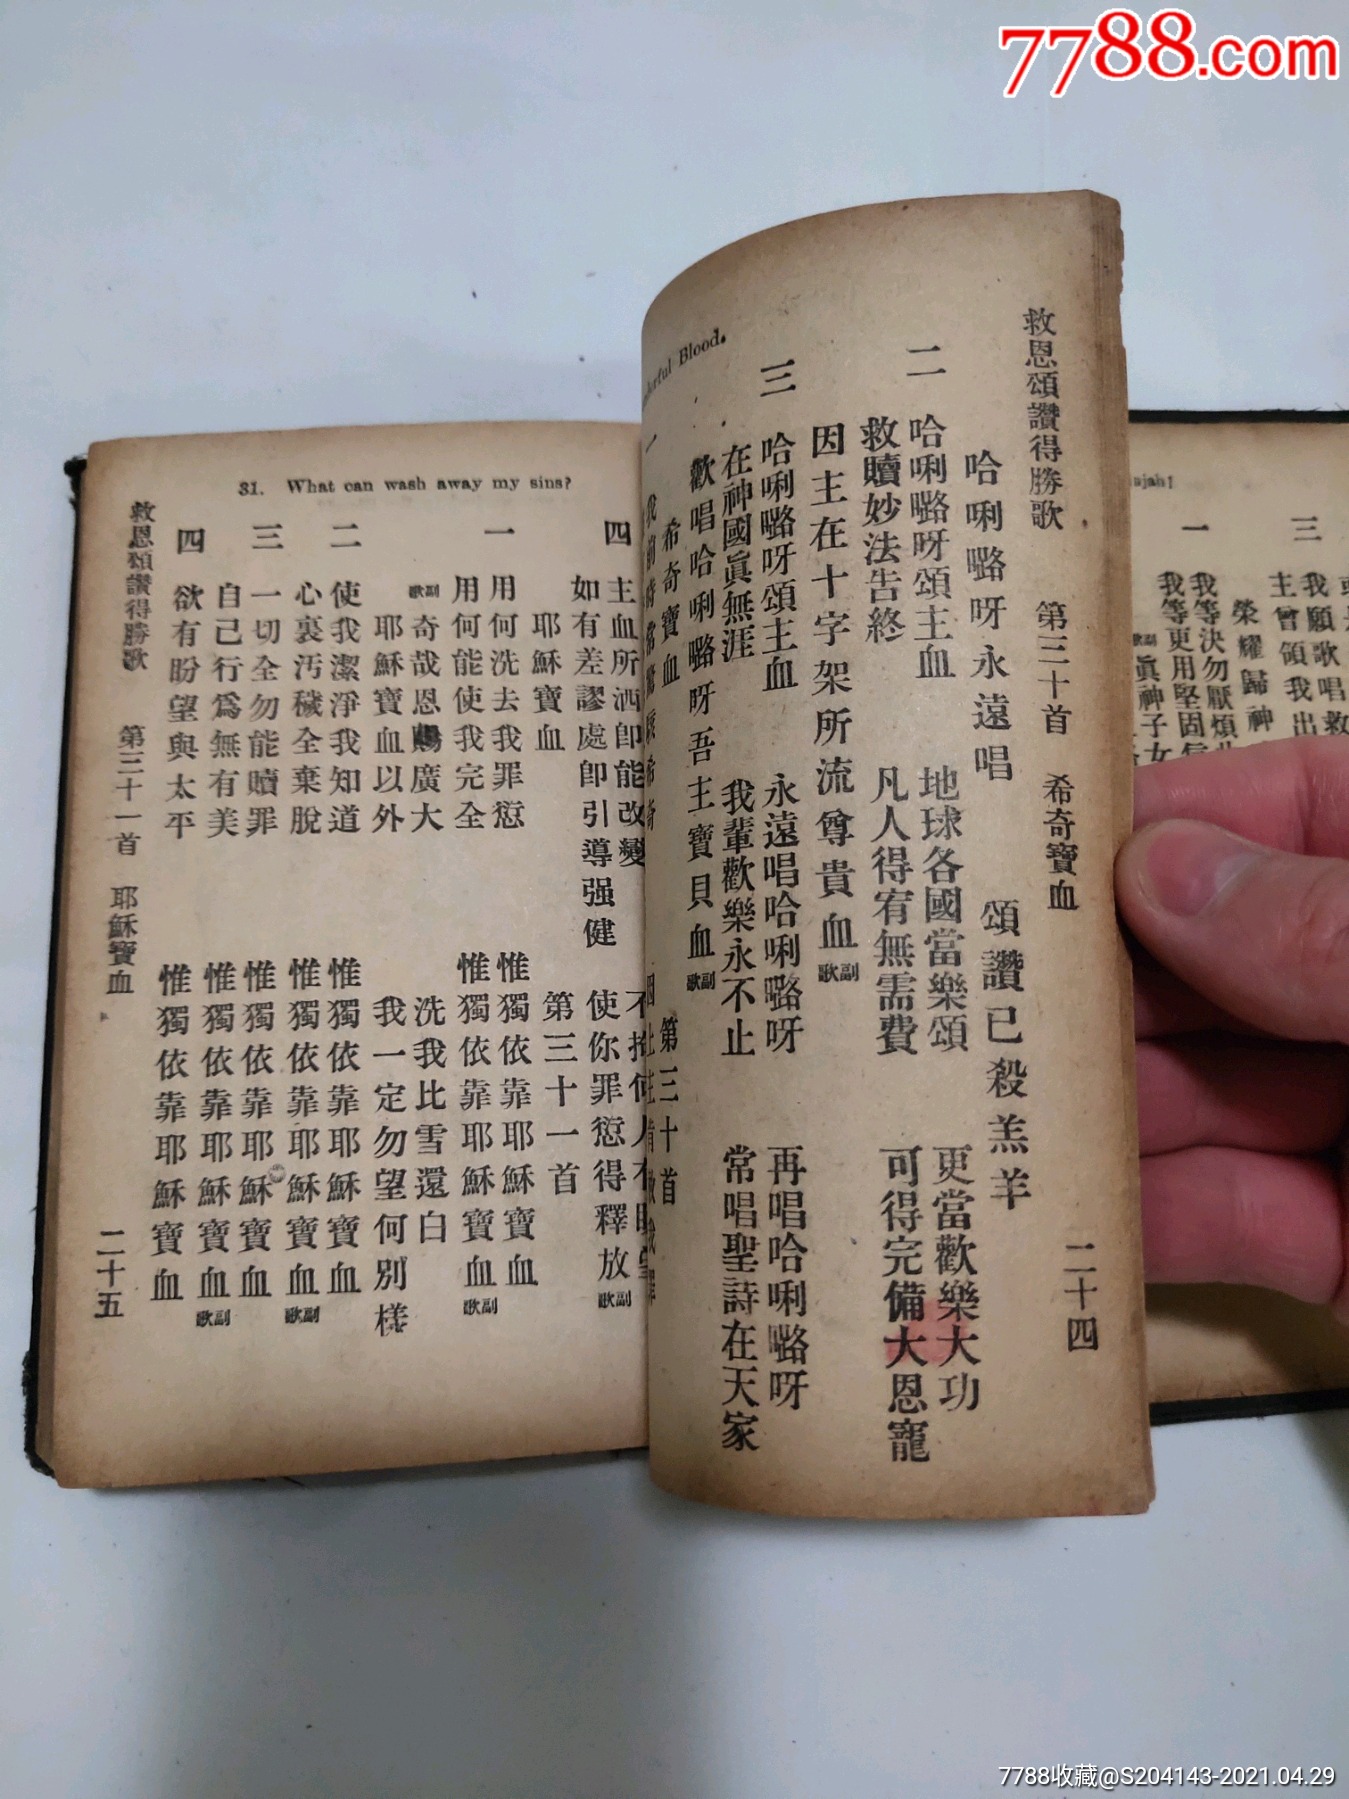 7788.com
救恩頌讚得勝歌 第三十首 希奇寶血 二十四
哈唎嚕呀永遠唱 頌讚已殺羔羊
二 哈唎嚕呀頌主血 地球各國當樂頌 更當歡樂大功
救贖妙法告終 凡人得宥無需費 可得完備大恩寵
因主在十字架所流尊貴血 副歌
三 哈唎嚕呀頌主血 永遠唱哈唎嚕呀 再唱哈唎嚕呀
在神國眞無涯 我輩歡樂永不止 常唱聖詩在天家
歡唱哈唎嚕呀吾主寶貝血 副歌
希奇寶血 第三十首
Blood.
一
31. What can wash away my sins?
四 主血所洒卽能改變
如有差謬處卽引導强健 使你罪愆得釋放 副歌
耶穌寶血 第三十一首
一 用何洗去我罪愆 惟獨依靠耶穌寶血
用何能使我完全 惟獨依靠耶穌寶血 副歌
副歌 奇哉恩賜廣大 洗我比雪還白
耶穌寶血以外 我一定勿望何別樣
二 使我潔淨我知道 惟獨依靠耶穌寶血
心裏汚穢全棄脫 惟獨依靠耶穌寶血 副歌
三 一切全勿能贖罪 惟獨依靠耶穌寶血
自己行爲無有美 惟獨依靠耶穌寶血 副歌
四 欲有盼望與太平 惟獨依靠耶穌寶血
救恩頌讚得勝歌 第三十一首 耶穌寶血 二十五
ujah!
三 我願歌唱救
主曾領我出
榮耀歸神
一 我等決勿厭煩
我等更用堅固信
副歌 眞神子女
7788收藏@S204143-2021.04.29